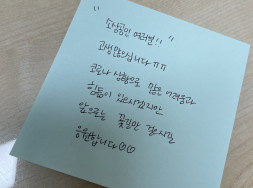 " 소상공인 여러분!! "
고생 많으십니다 ㅠㅠ
코로나 상황으로 많은 어려움과
힘듦이 있으시겠지만
앞으로는 꽃길만 걸으시길
응원합니다☺☺